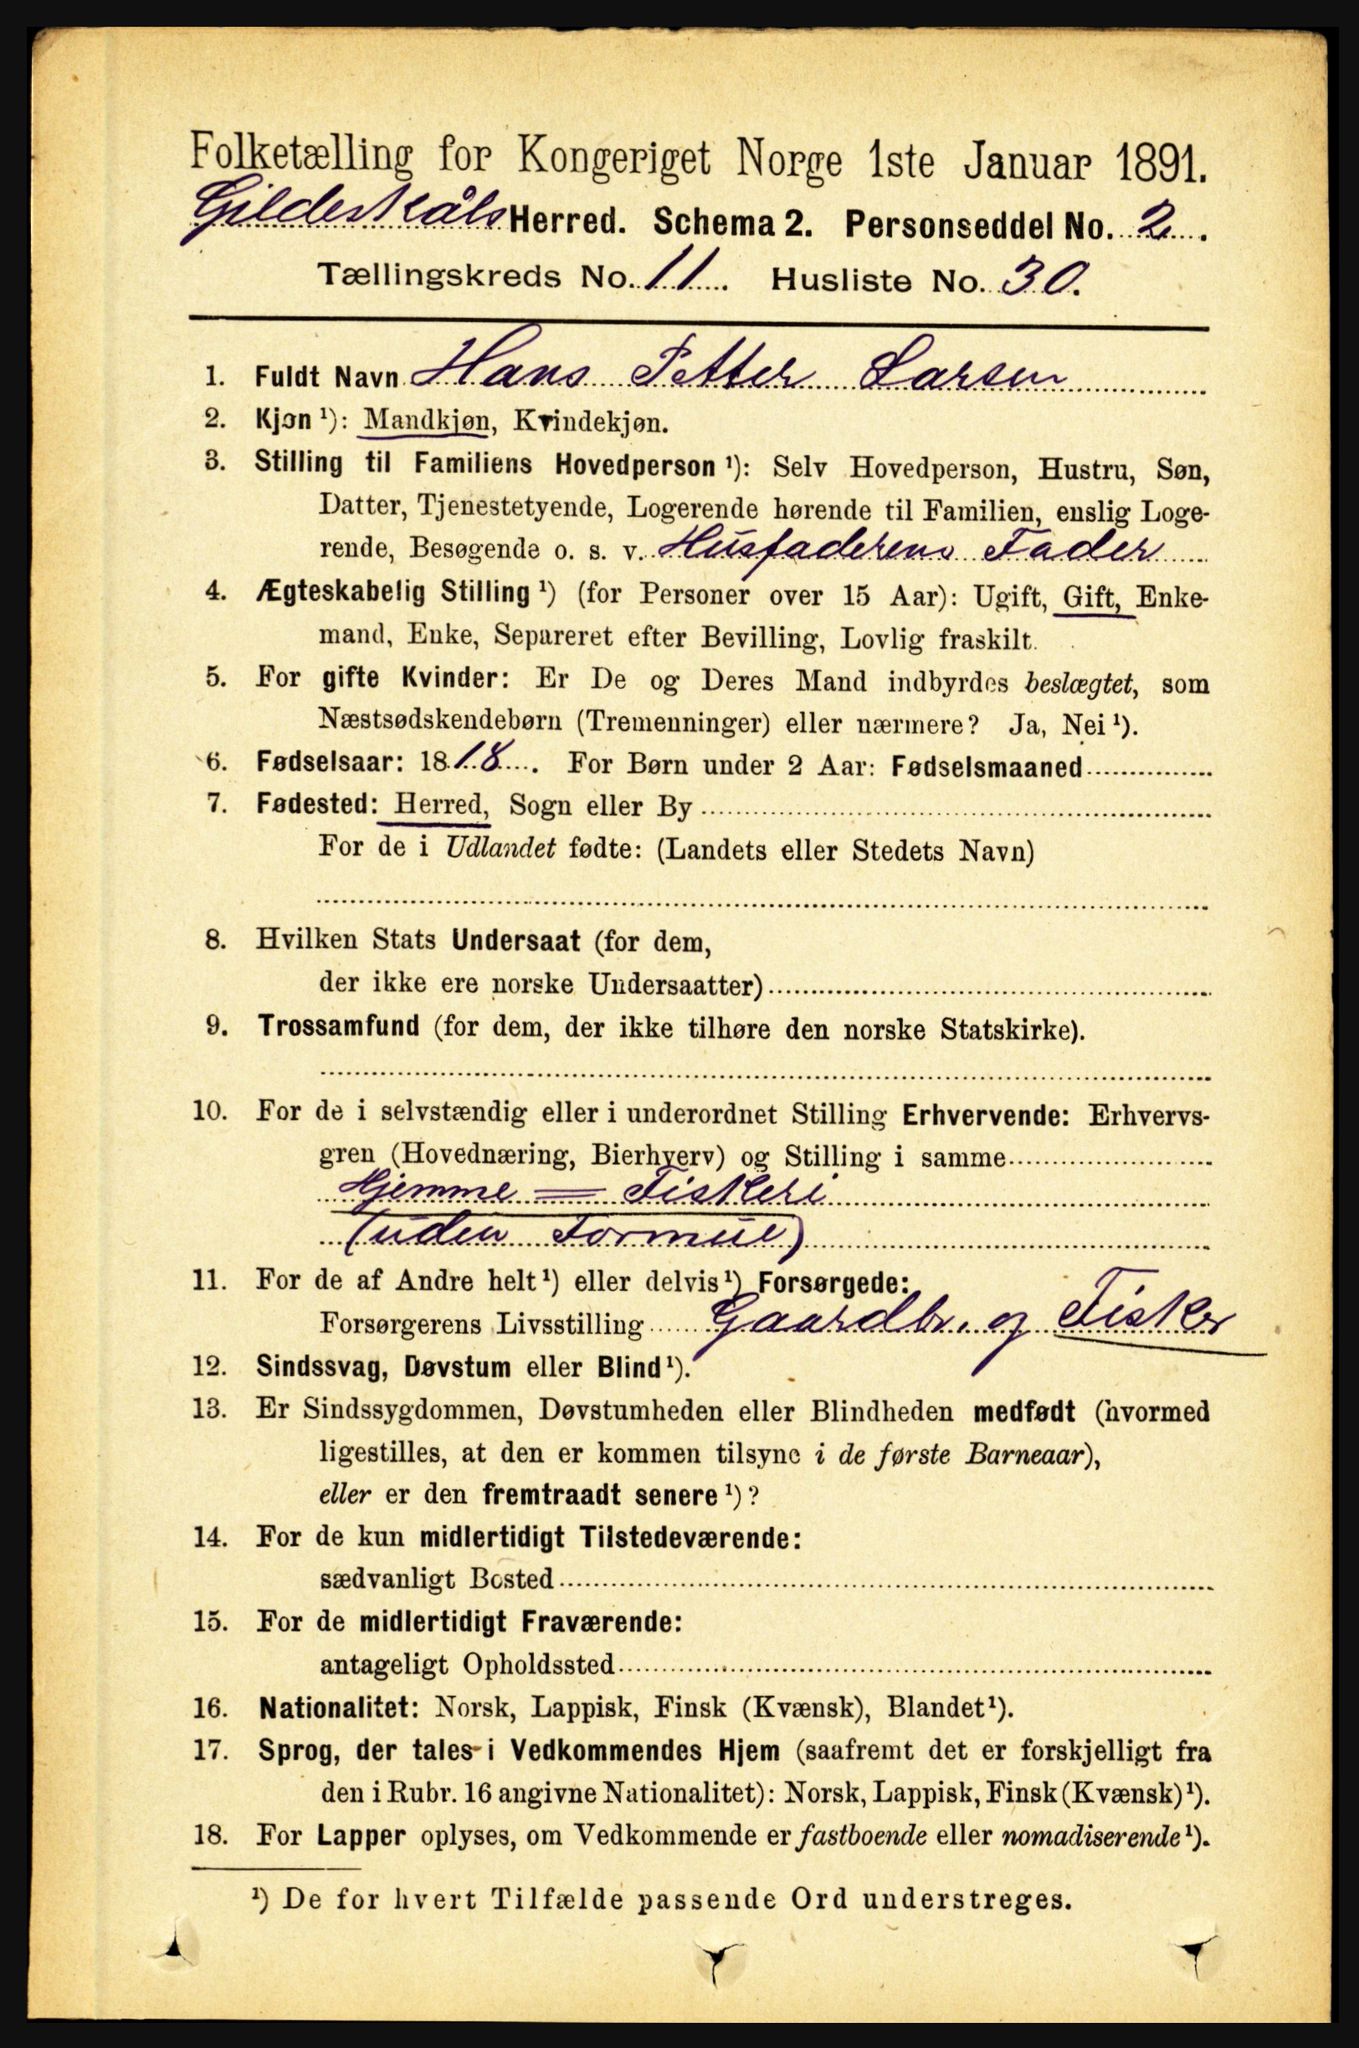 Folketælling for Kongeriget Norge 1ste Januar 1891.
Gildeskåls Herred. Schema 2. Personseddel No. 2.
Tællingskreds No. 11. Husliste No. 30.
1. Fuldt Navn Hans Petter Larsen
2. Kjøn ¹): Mandkjøn, Kvindekjøn.
3. Stilling til Familiens Hovedperson ¹): Selv Hovedperson, Hustru, Søn,
Datter, Tjenestetyende, Logerende hørende til Familien, enslig Loge-
rende, Besøgende o. s. v. Husfaderens Fader
4. Ægteskabelig Stilling ¹) (for Personer over 15 Aar): Ugift, Gift, Enke-
mand, Enke, Separeret efter Bevilling, Lovlig fraskilt.
5. For gifte Kvinder: Er De og Deres Mand indbyrdes beslægtet, som
Næstsødskendebørn (Tremenninger) eller nærmere? Ja, Nei ¹).
6. Fødselsaar: 1818. For Børn under 2 Aar: Fødselsmaaned
7. Fødested: Herred, Sogn eller By
For de i Udlandet fødte: (Landets eller Stedets Navn)
8. Hvilken Stats Undersaat (for dem,
der ikke ere norske Undersaatter)
9. Trossamfund (for dem, der ikke tilhøre den norske Statskirke).
10. For de i selvstændig eller i underordnet Stilling Erhvervende: Erhvervs-
gren (Hovednæring, Bierhverv) og Stilling i samme
Hjemme = Fiskeri
(uden Formue)
11. For de af Andre helt ¹) eller delvis ¹) Forsørgede:
Forsørgerens Livsstilling Gaardbr. og Fisker
12. Sindssvag, Døvstum eller Blind ¹).
13. Er Sindssygdommen, Døvstumheden eller Blindheden medfødt (hvormed
ligestilles, at den er kommen tilsyne i de første Barneaar),
eller er den fremtraadt senere ¹)?
14. For de kun midlertidigt Tilstedeværende:
sædvanligt Bosted
15. For de midlertidigt Fraværende:
antageligt Opholdssted
16. Nationalitet: Norsk, Lappisk, Finsk (Kvænsk), Blandet ¹).
17. Sprog, der tales i Vedkommendes Hjem (saafremt det er forskjelligt fra
den i Rubr. 16 angivne Nationalitet): Norsk, Lappisk, Finsk (Kvænsk) ¹).
18. For Lapper oplyses, om Vedkommende er fastboende eller nomadiserende ¹).
¹) De for hvert Tilfælde passende Ord understreges.